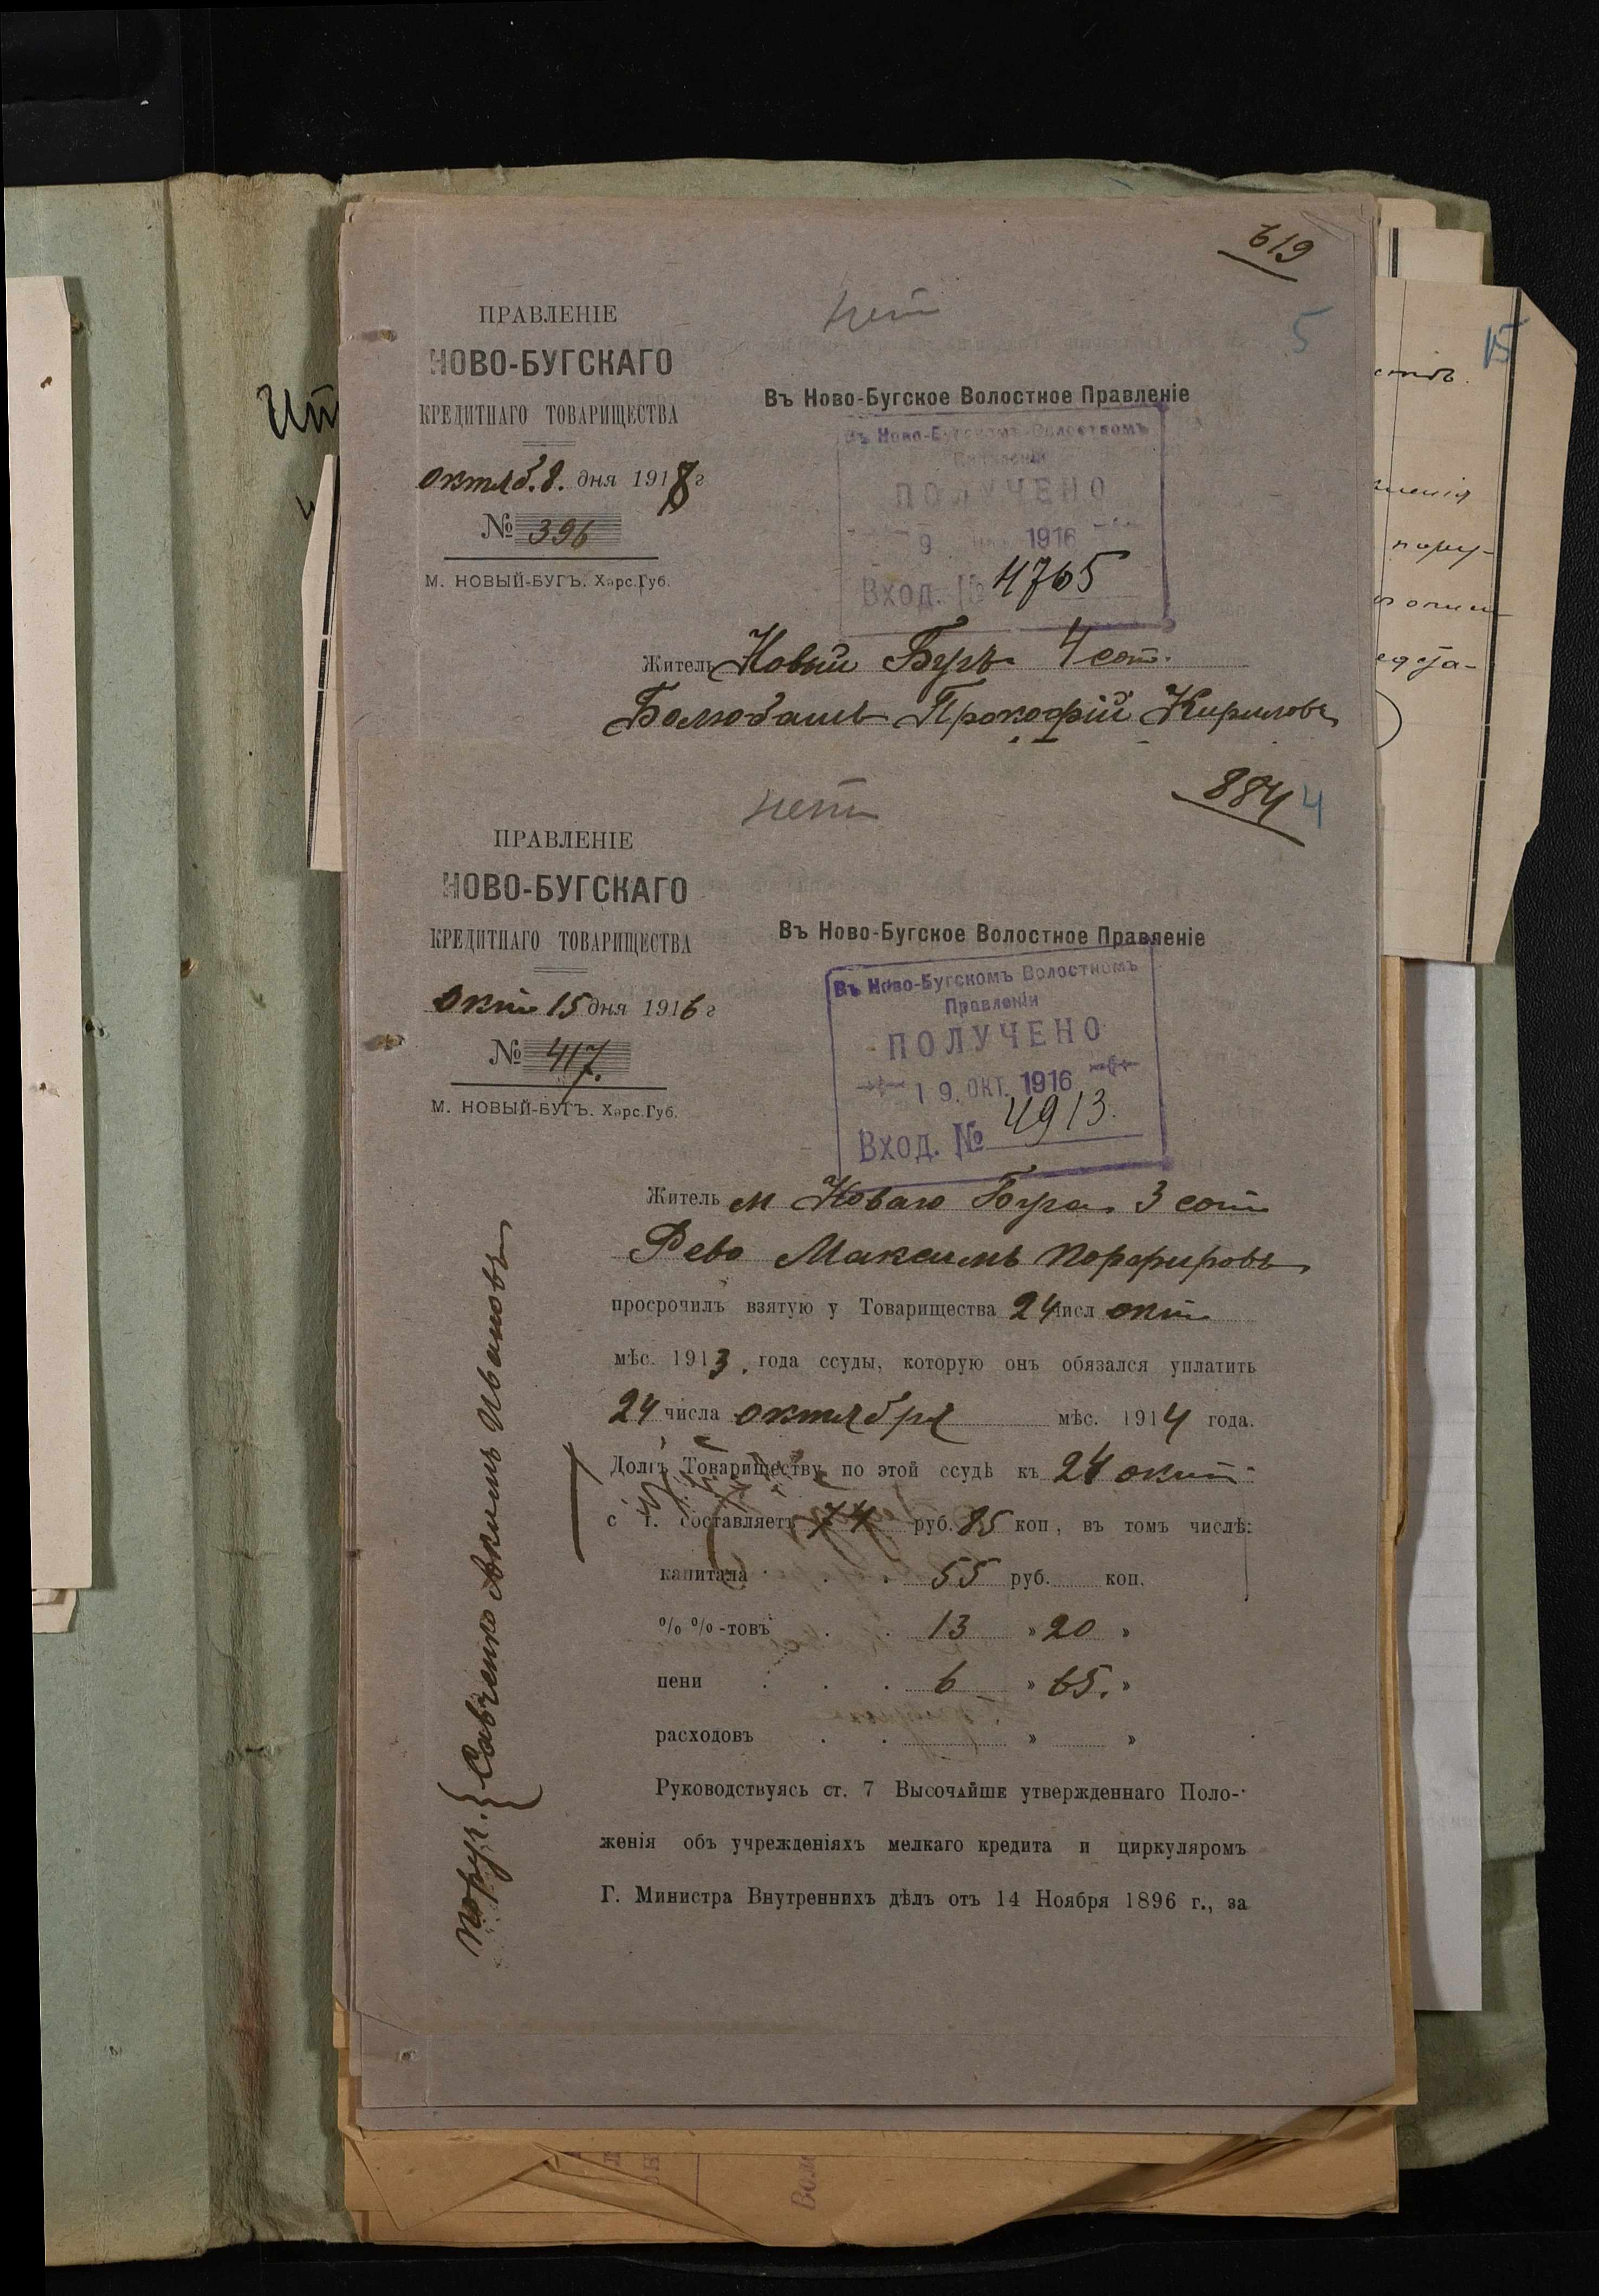 619
нет
5
ПРАВЛЕНІЕ
НОВО-БУГСКАГО
КРЕДИТНАГО ТОВАРИЩЕСТВА
Въ Ново-Бугское Волостное Правленіе
Въ Ново-Бугскомъ Волостномъ
Правленіи
ПОЛУЧЕНО
9 1916
Вход. № 4765
октяб. 8. дня 1918 г
№ 396
М. НОВЫЙ-БУГЪ. Хэрс.Губ.
Житель Новый Бугъ 4 сот.
Прокофій Кириловъ
884
4
нет
ПРАВЛЕНІЕ
НОВО-БУГСКАГО
КРЕДИТНАГО ТОВАРИЩЕСТВА
Въ Ново-Бугское Волостное Правленіе
Въ Ново-Бугскомъ Волостномъ
Правленіи
ПОЛУЧЕНО
19. ОКТ. 1916
Вход. № 4913.
окт 15 дня 1916 г
№ 417.
М. НОВЫЙ-БУГЪ. Хэрс.Губ.
Житель м Новаго Буга 3 сот
Рево Максимъ Порфировъ
просрочилъ взятую у Товарищества 24 числ окт
мѣс. 1913. года ссуды, которую онъ обязался уплатить
24 числа октября мѣс. 1914 года.
Долгъ Товариществу по этой ссудѣ къ 24 окт
с г. составляетъ 74 руб. 85 коп, въ томъ числѣ:
капитала . . 55 руб. коп.
% %-товъ . . 13 » 20 »
пени . . . 6 » 65. »
расходовъ . . » »
Руководствуясь ст. 7 Высочайше утвержденнаго Поло-
женія объ учрежденіяхъ мелкаго кредита и циркуляромъ
Г. Министра Внутреннихъ дѣлъ отъ 14 Ноября 1896 г., за
поруч. { Савченко Акимъ Ивановъ
15